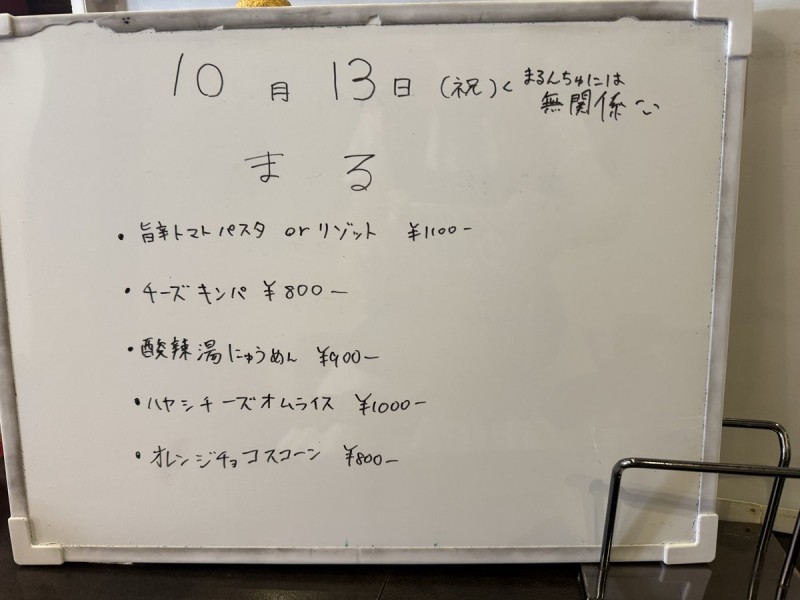 10月13日(祝)<まるんちゅには
無関係
まる
・旨辛トマトパスタ or リゾット ¥1100-
・チーズキンパ ¥800-
・酸辣湯にゅうめん ¥900-
・ハヤシチーズオムライス ¥1000-
・オレンジチョコスコーン ¥800-